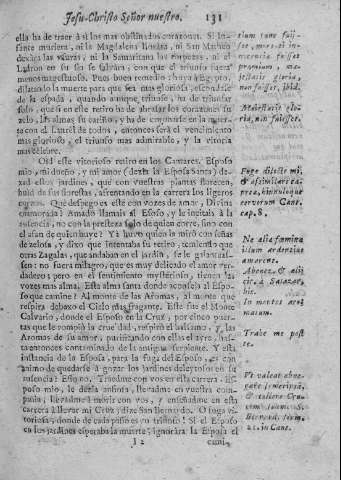 Jesu-Christo Señor nuestro. 131
ella ha de traer à sì las mas obstinados coraçones. Si lo-
sante muriera, ni la Magdalena llorára, ni San Mateo
dexára las vsuras, ni la Samaritana las torpezas, ni el
Ladron en su se se salvára, con que el triunfo fuera
menos magestuoso. Pues buen remedio; huya à Egypto,
dilatando la muerte para que sea mas gloriosa, escondase
de la espada, quando aunque, triunfo, ha de triunfar
solo, que si en este retiro ha de abrasar los coraçones su
zelo, las almas su cariño, y ha de empuñarse en la muerte
con el Laurèl de todos, entonces serà el vencimiento
mas glorioso, el triunfo mas admirable, y la vitoria
mas celebre.
O si este vitorioso retiro en los Cantares. Esposo
mio, mi dueño, y mi amor (dezia la Esposa Santa) de-
xad essos jardines, que con vuestras plantas florecen,
huid de sus florestas, afrentando en la carrera los ligeros
corços. Què despego es este con vozes de amor, Divina
enamorada? Amado llamais al Esposo, y le incitais à la
ausencia, no con la presteza solo de quien corre, sino con
el afan de quien huye? Ya huvo quien la mirò con señas
de zelosa, y dixo que intentaba su retiro, temiendo que
otras Zagalas, que andaban en el jardin, se le galantea-
ssen: no fuera milagro, que es muy delicado el amor ver-
dadero; pero en el sentimiento mysterioso, tienen las
vozes mas alma. Esta alma santa donde aconseja al Espo-
so que camine? Al monte de las Aromas, al monte que
respira debaxo el Cielo mas fragante. Este fue el Monte
Calvario, donde el Esposo en la Cruz, por cinco puer-
tas que le rompiò la crueldad, respirò el balsamo, y las
Aromas de su amor, purificando con ellas el ayre, has-
ta entonces contaminado de la antigua serpiente. Y esta
instancia de la Esposa, para la fuga del Esposo, es con
animo de quedarse à gozar los jardines deleytosos en su
ausencia? Esso no. Traedme con vos en essa carrera. Es-
poso mio, le dezia ansiosa, llevadme en vuestra com-
pañia, llevadme à morir con vos, y enseñadme en esta
carrera à llevar mi Cruz, dize San Bernardo. O fuga vi-
toriosa, donde de cada passo es vn triunfo! Si el Esposo
en los jardines esperaba la muerte, ignorára la Esposa el
I 2 cami-
tium tunc fuis-
set, mors si in-
nocentia fuisset
præmium, ma-
jestatis gloria,
non fuisset, ibid.
Majestatis glo-
ria, non fuisset.
Fuge dilecte mi,
& assimilare ca-
preæ, hinnuloque
cervorum Cant.
cap. 8.
Ne alia fæmina
illum ardentius
amarent.
Abenez. & alij
cit. à Salazar.
hic.
In montes aro-
matum.
Trahe me post
te.